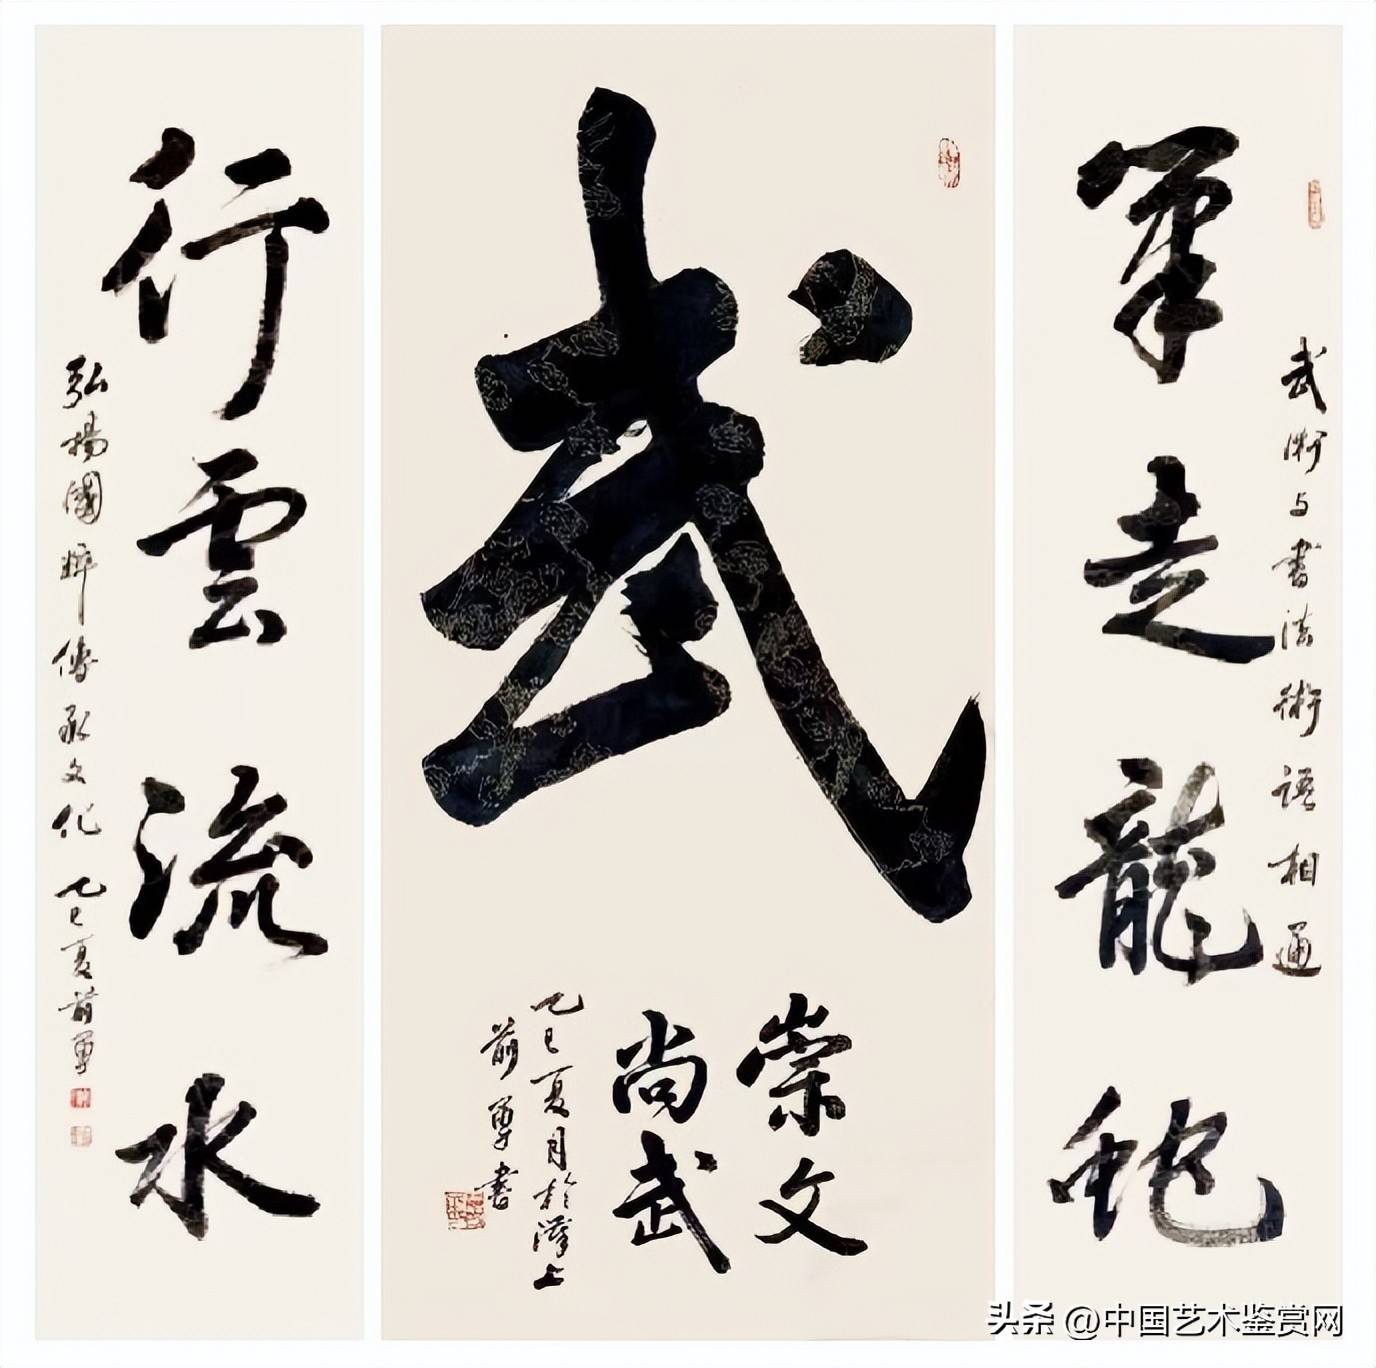 武術与書法術語相通
筆走龍蛇
武
崇文
尚武
乙巳夏月於上
前勇書
行雲流水
弘揚國粹傳承文化 乙巳夏前勇
头条 @中国艺术鉴赏网